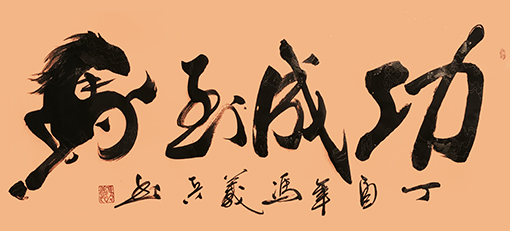 馬到成功
丁酉年馮義兵